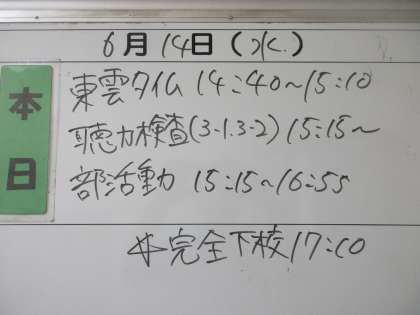 6月14日(水)
本日
東雲タイム 14:40~15:10
聴力検査(3-1.3-2) 15:15~
部活動 15:15~16:55
※完全下校17:10